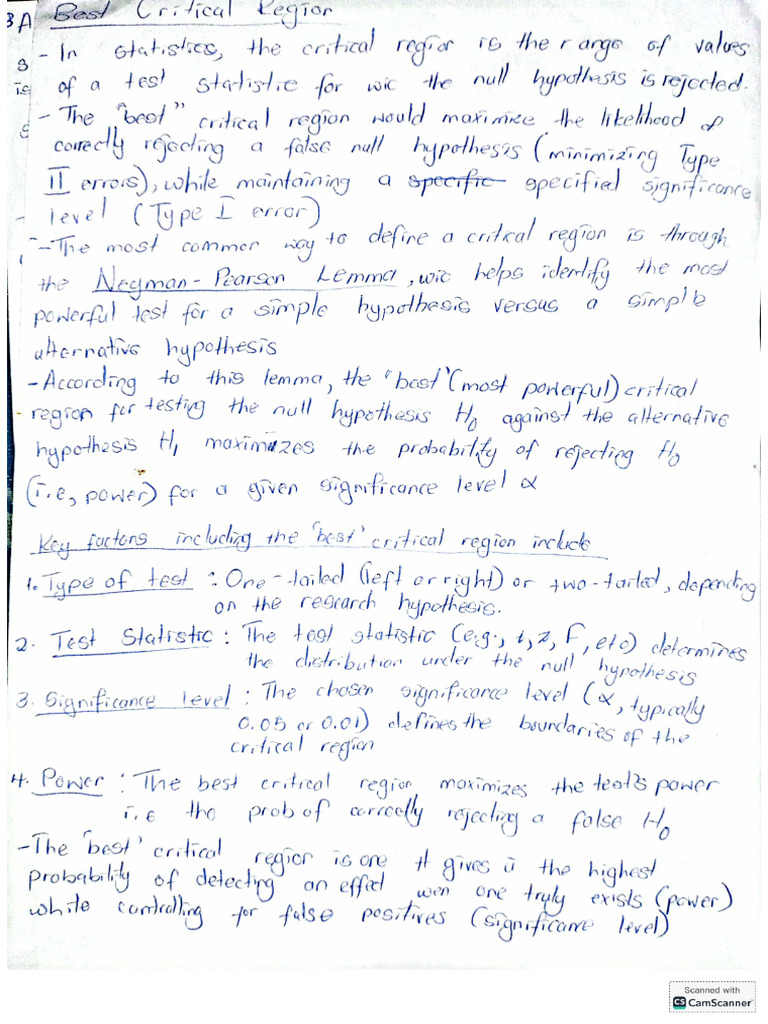 3A Best Critical Region
- In statistics, the critical region is the range of values
of a test statistic for wic the null hypothesis is rejected.
- The "best" critical region would maximize the likelihood of
correctly rejecting a false null hypothesis (minimizing Type
II errors), while maintaining a specific specified significance
level (Type I error)
- The most common way to define a critical region is through
the Neyman-Pearson Lemma, wic helps identify the most
powerful test for a simple hypothesis versus a simple
alternative hypothesis
- According to this lemma, the "best" (most powerful) critical
region for testing the null hypothesis H0 against the alternative
hypothesis H1 maximizes the probability of rejecting H0
(i.e, power) for a given significance level α
Key factors including the "best" critical region include
1. Type of test : One-tailed (left or right) or two-tailed, depending
on the research hypothesis.
2. Test Statistic : The test statistic (e.g., t, z, F, etc) determines
the distribution under the null hypothesis
3. Significance level : The chosen significance level (α, typically
0.05 or 0.01) defines the boundaries of the
critical region
4. Power : The best critical region maximizes the test's power
i.e the prob of correctly rejecting a false H0
- The "best" critical region is one tt gives u the highest
probability of detecting an effect wen one truly exists (power)
while controlling for false positives (significance level)
Scanned with
CS CamScanner